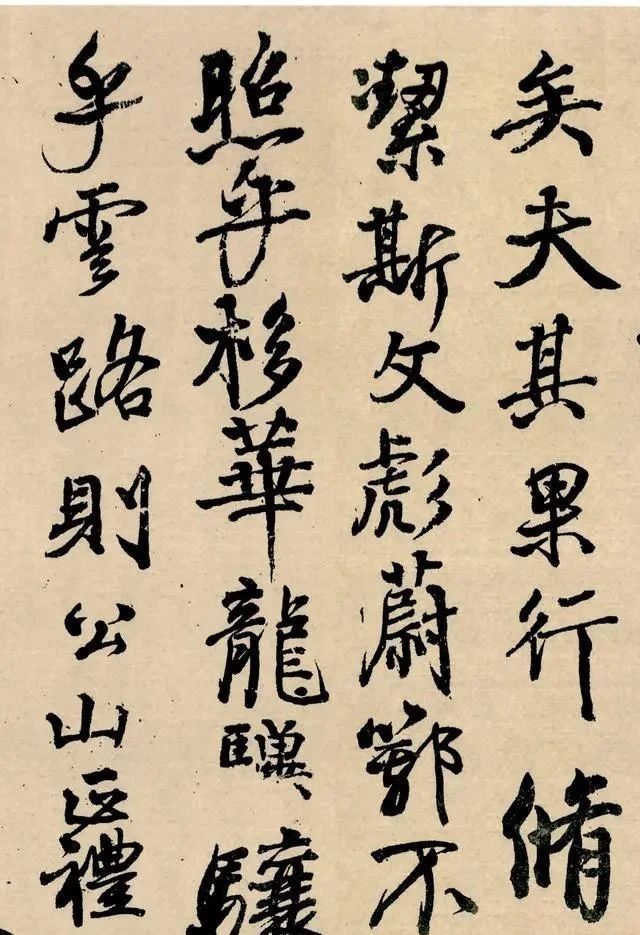 矣夫其果行脩
潔斯文彪蔚鄂不
照乎栘華龍驥驤
乎雲路則公山正禮